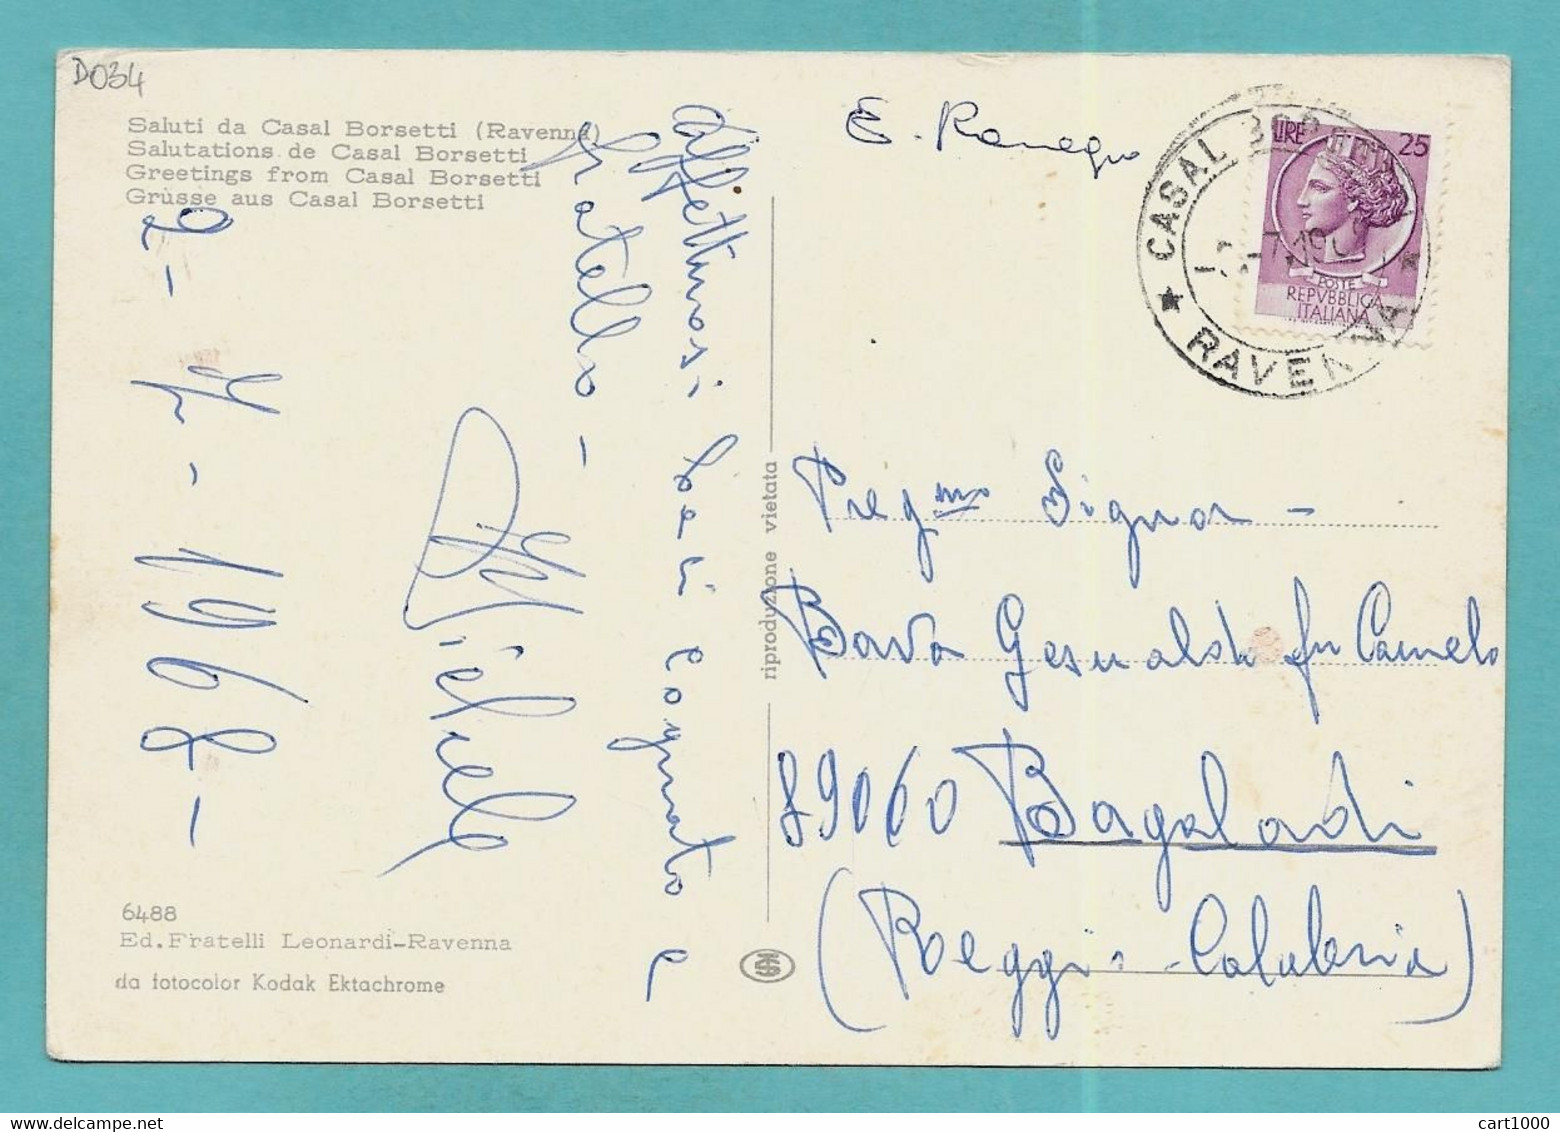 D034
Saluti da Casal Borsetti (Ravenna)
Salutations de Casal Borsetti
Greetings from Casal Borsetti
Grüsse aus Casal Borsetti
affettuosi baci cognato e
fratello -
Michele
2 - 7 - 1968 -
6488
Ed. Fratelli Leonardi-Ravenna
da fotocolor Kodak Ektachrome
riproduzione vietata
E.
CASAL
RAVENNA
LIRE 25
POSTE
REPVBBLICA
ITALIANA
Pregmo Signor -
Bava Gesualdo fu Carmelo
89060 Bagaladi
(Reggio-Calabria)
cart1000